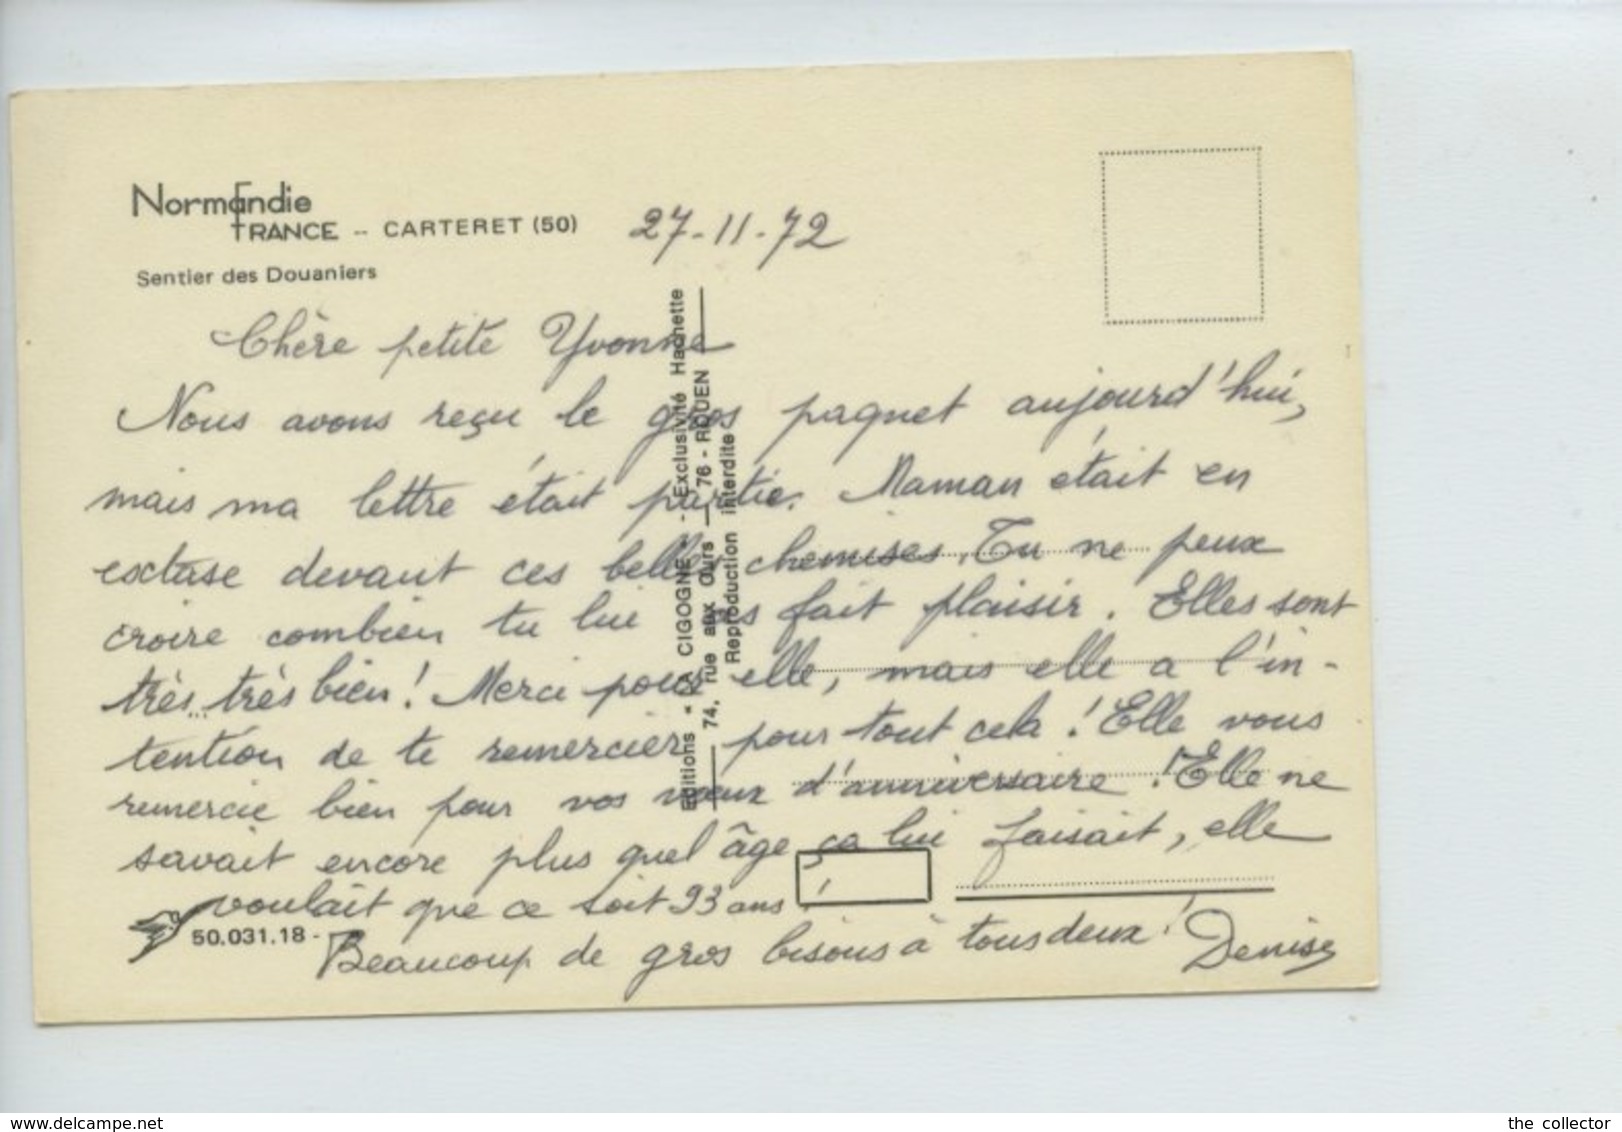 Normandie
FRANCE -- CARTERET (50)
27-11-72
Sentier des Douaniers
Chère petite Yvonne
Nous avons reçu le gros paquet aujourd'hui,
mais ma lettre était partie. Maman était en
extase devant ces belles chemises. Tu ne peux
croire combien tu lui as fait plaisir. Elles sont
très très bien! Merci pour elle, mais elle a l'in-
tention de te remercier pour tout cela! Elle vous
remercie bien pour vos vœux d'anniversaire! Elle ne
savait encore plus quel âge ça lui faisait, elle
voulait que ce soit 93 ans!
50.031.18 -
Beaucoup de gros bisous à tous deux! Denise
Editions "LA CIGOGNE" - Exclusivité Hachette
74, rue aux Ours - 76 - ROUEN
Reproduction interdite
delcampe.net
the collector